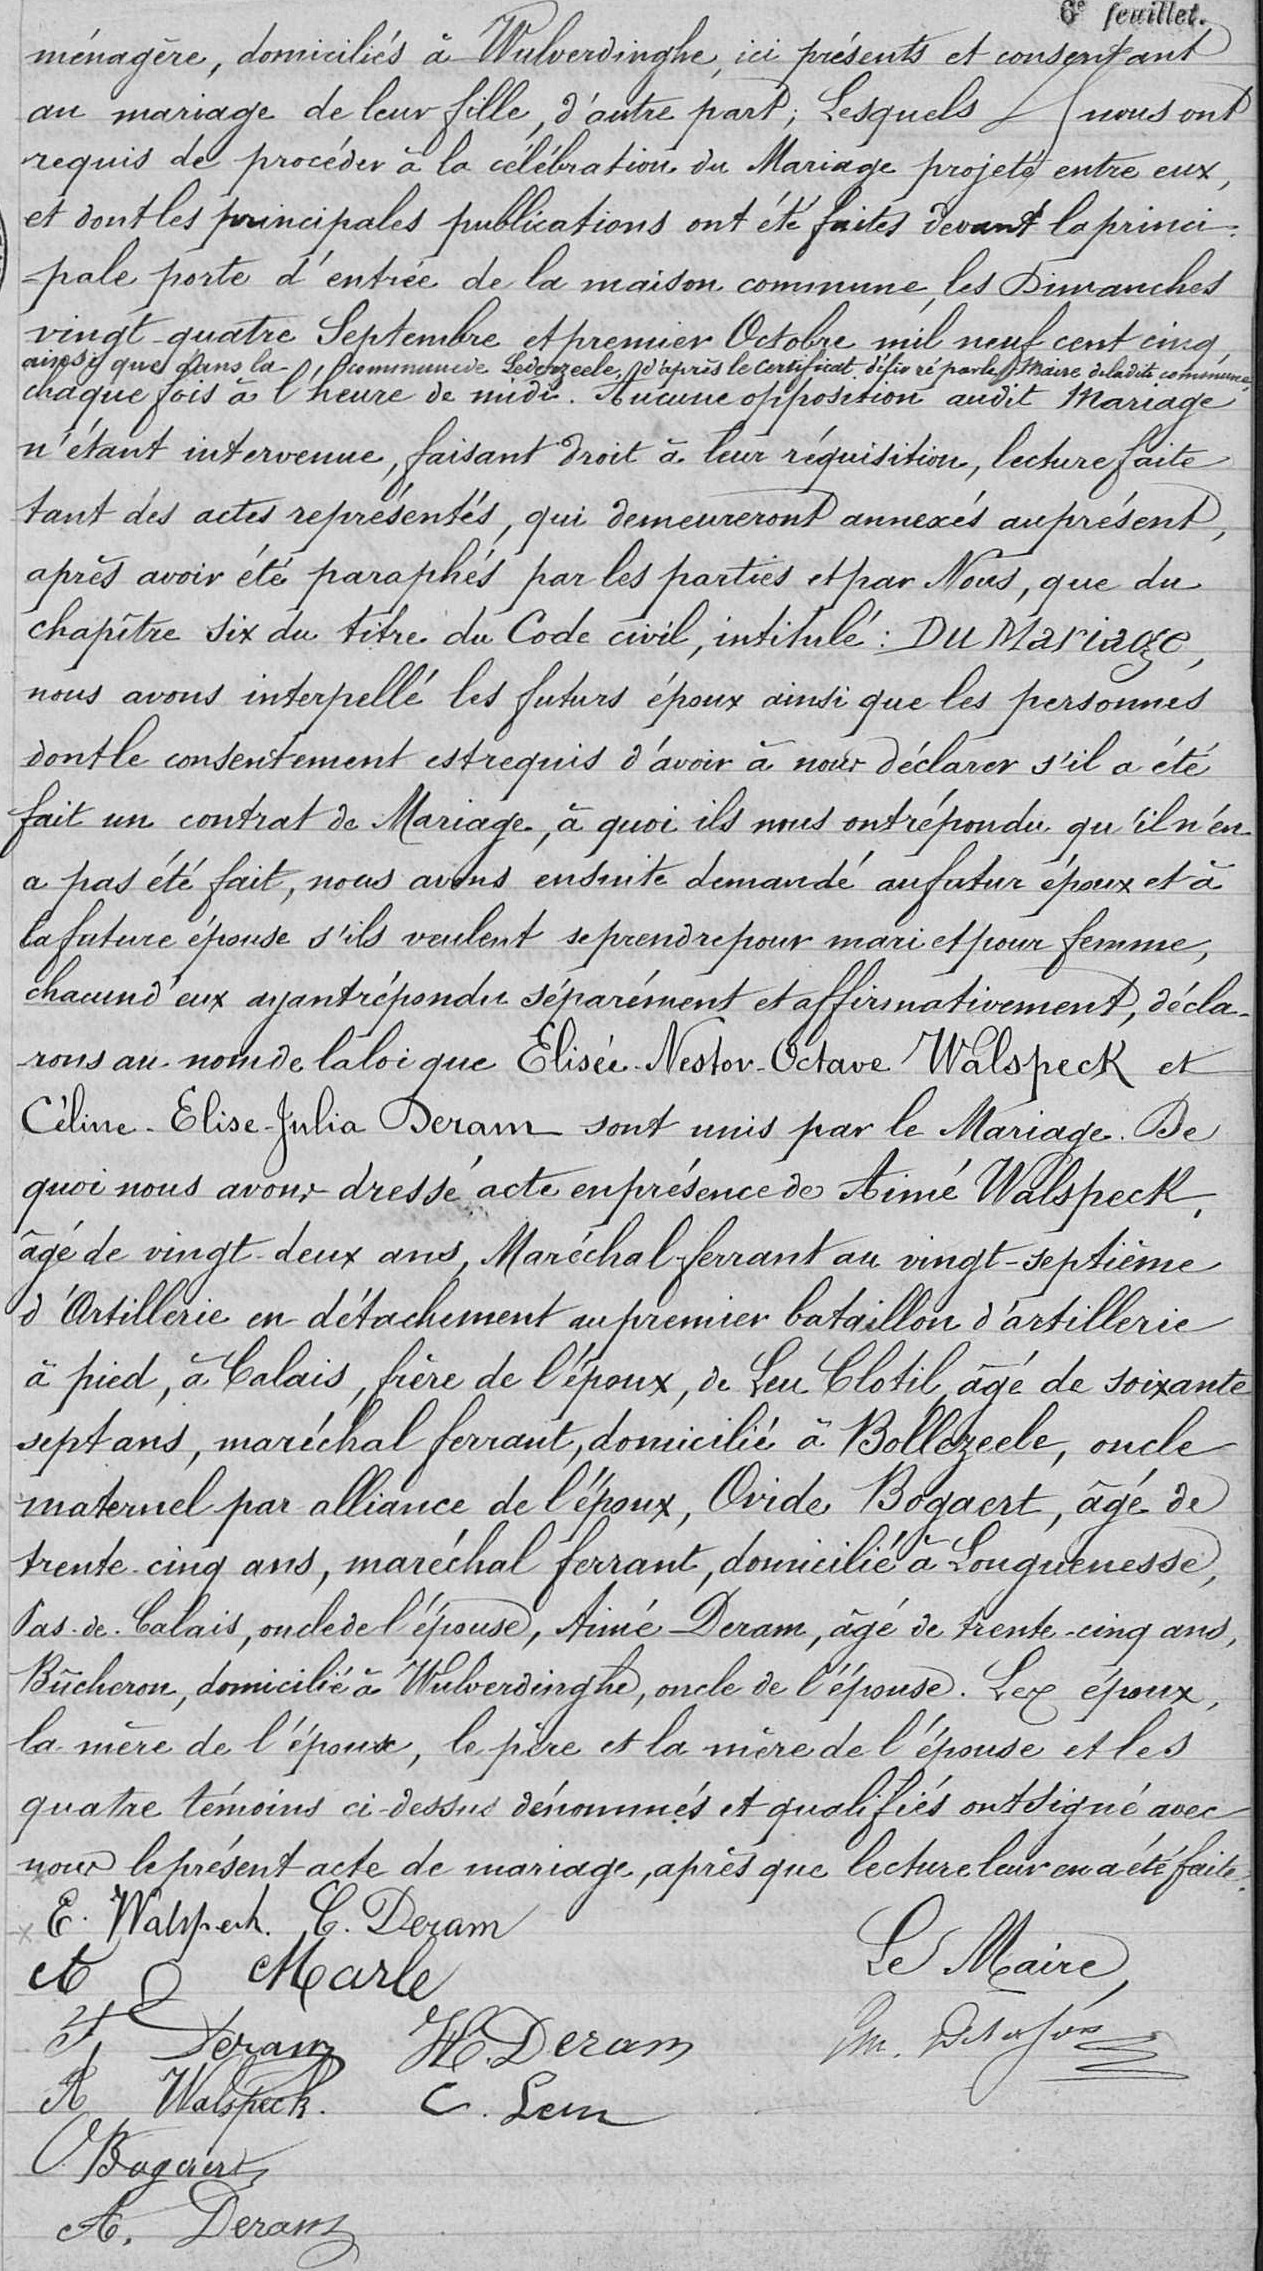 6e feuillet.
ménagère, domiciliés à Wulverdinghe, ici présents et consentant
au mariage de leur fille, d'autre part; Lesquels nous ont
requis de procéder à la célébration du Mariage projeté entre eux,
et dont les principales publications ont été faites devant la princi-
-pale porte d'entrée de la maison commune, les Dimanches
vingt-quatre Septembre et premier Octobre mil neuf cent cinq,
ainsi que dans la commune de Lederzeele, d'après le certificat délivré par le Maire de ladite commune,
chaque fois à l'heure de midi. Aucune opposition audit Mariage
n'étant intervenue, faisant droit à leur réquisition, lecture faite
tant des actes représentés, qui demeureront annexés au présent,
après avoir été paraphés par les parties et par Nous, que du
chapître six du titre du Code civil, intitulé : Du Mariage,
nous avons interpellé les futurs époux ainsi que les personnes
dont le consentement est requis d'avoir à nous déclarer s'il a été
fait un contrat de Mariage, à quoi ils nous ont répondu qu'il n'en
a pas été fait, nous avons ensuite demandé au futur époux et à
la future épouse s'ils veulent se prendre pour mari et pour femme,
chacun d'eux ayant répondu séparément et affirmativement, décla-
-rons au nom de la loi que Elisée-Nestor-Octave Walspeck et
Céline-Elise-Julia Deram sont unis par le Mariage. De
quoi nous avons dressé acte en présence de Aimé Walspeck,
âgé de vingt-deux ans, Maréchal-ferrant au vingt-septième
d'Artillerie en détachement au premier bataillon d'artillerie
à pied, à Calais, frère de l'époux, de Leu Clotil, âgé de soixante
sept ans, maréchal ferrant, domicilié à Bollezeele, oncle
maternel par alliance de l'époux, Ovide Bogaert, âgé de
trente-cinq ans, maréchal ferrant, domicilié à Longuenesse,
Pas-de-Calais, oncle de l'épouse, Aimé Deram, âgé de trente-cinq ans,
Bûcheron, domicilié à Wulverdinghe, oncle de l'épouse. Les époux,
la mère de l'époux, le père et la mère de l'épouse et les
quatre témoins ci-dessus dénommés et qualifiés ont signé avec
nous le présent acte de mariage, après que lecture leur en a été faite.
E. Walspeck. C. Deram
Marle
Le Maire,
Deram H. Deram
A Walspeck. C. Leu
O Bogaert
A. Deram